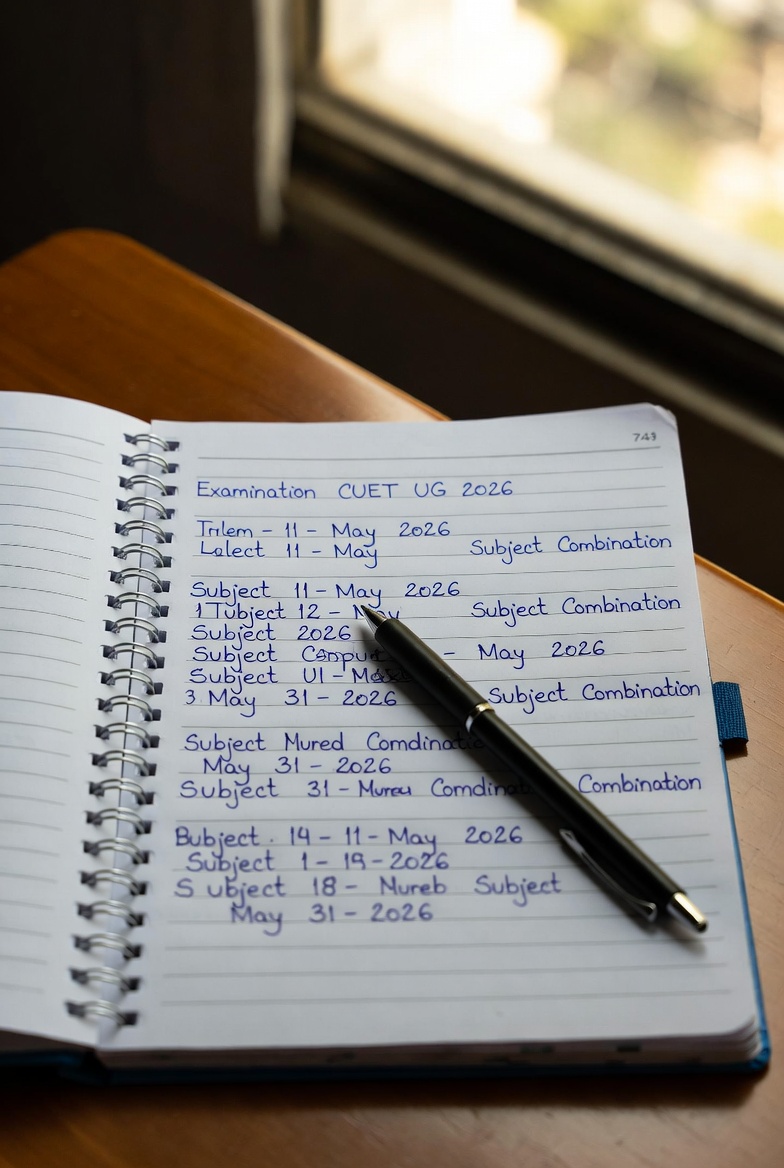 743
Examination CUET UG 2026
Trlem - 11 - May 2026
Lelect 11 - May Subject Combination
Subject 11 - May 2026
1 Tubject 12 - May Subject Combination
Subject 2026
Subject - May 2026
Subject UI -
3 May 31 - 2026 Subject Combination
Subject Mured
May 31 - 2026
Subject 31 - Combination
Bubject . 14 - 11 - May 2026
Subject 1 - 19 - 2026
S ubject 18 - Mureb Subject
May 31 - 2026